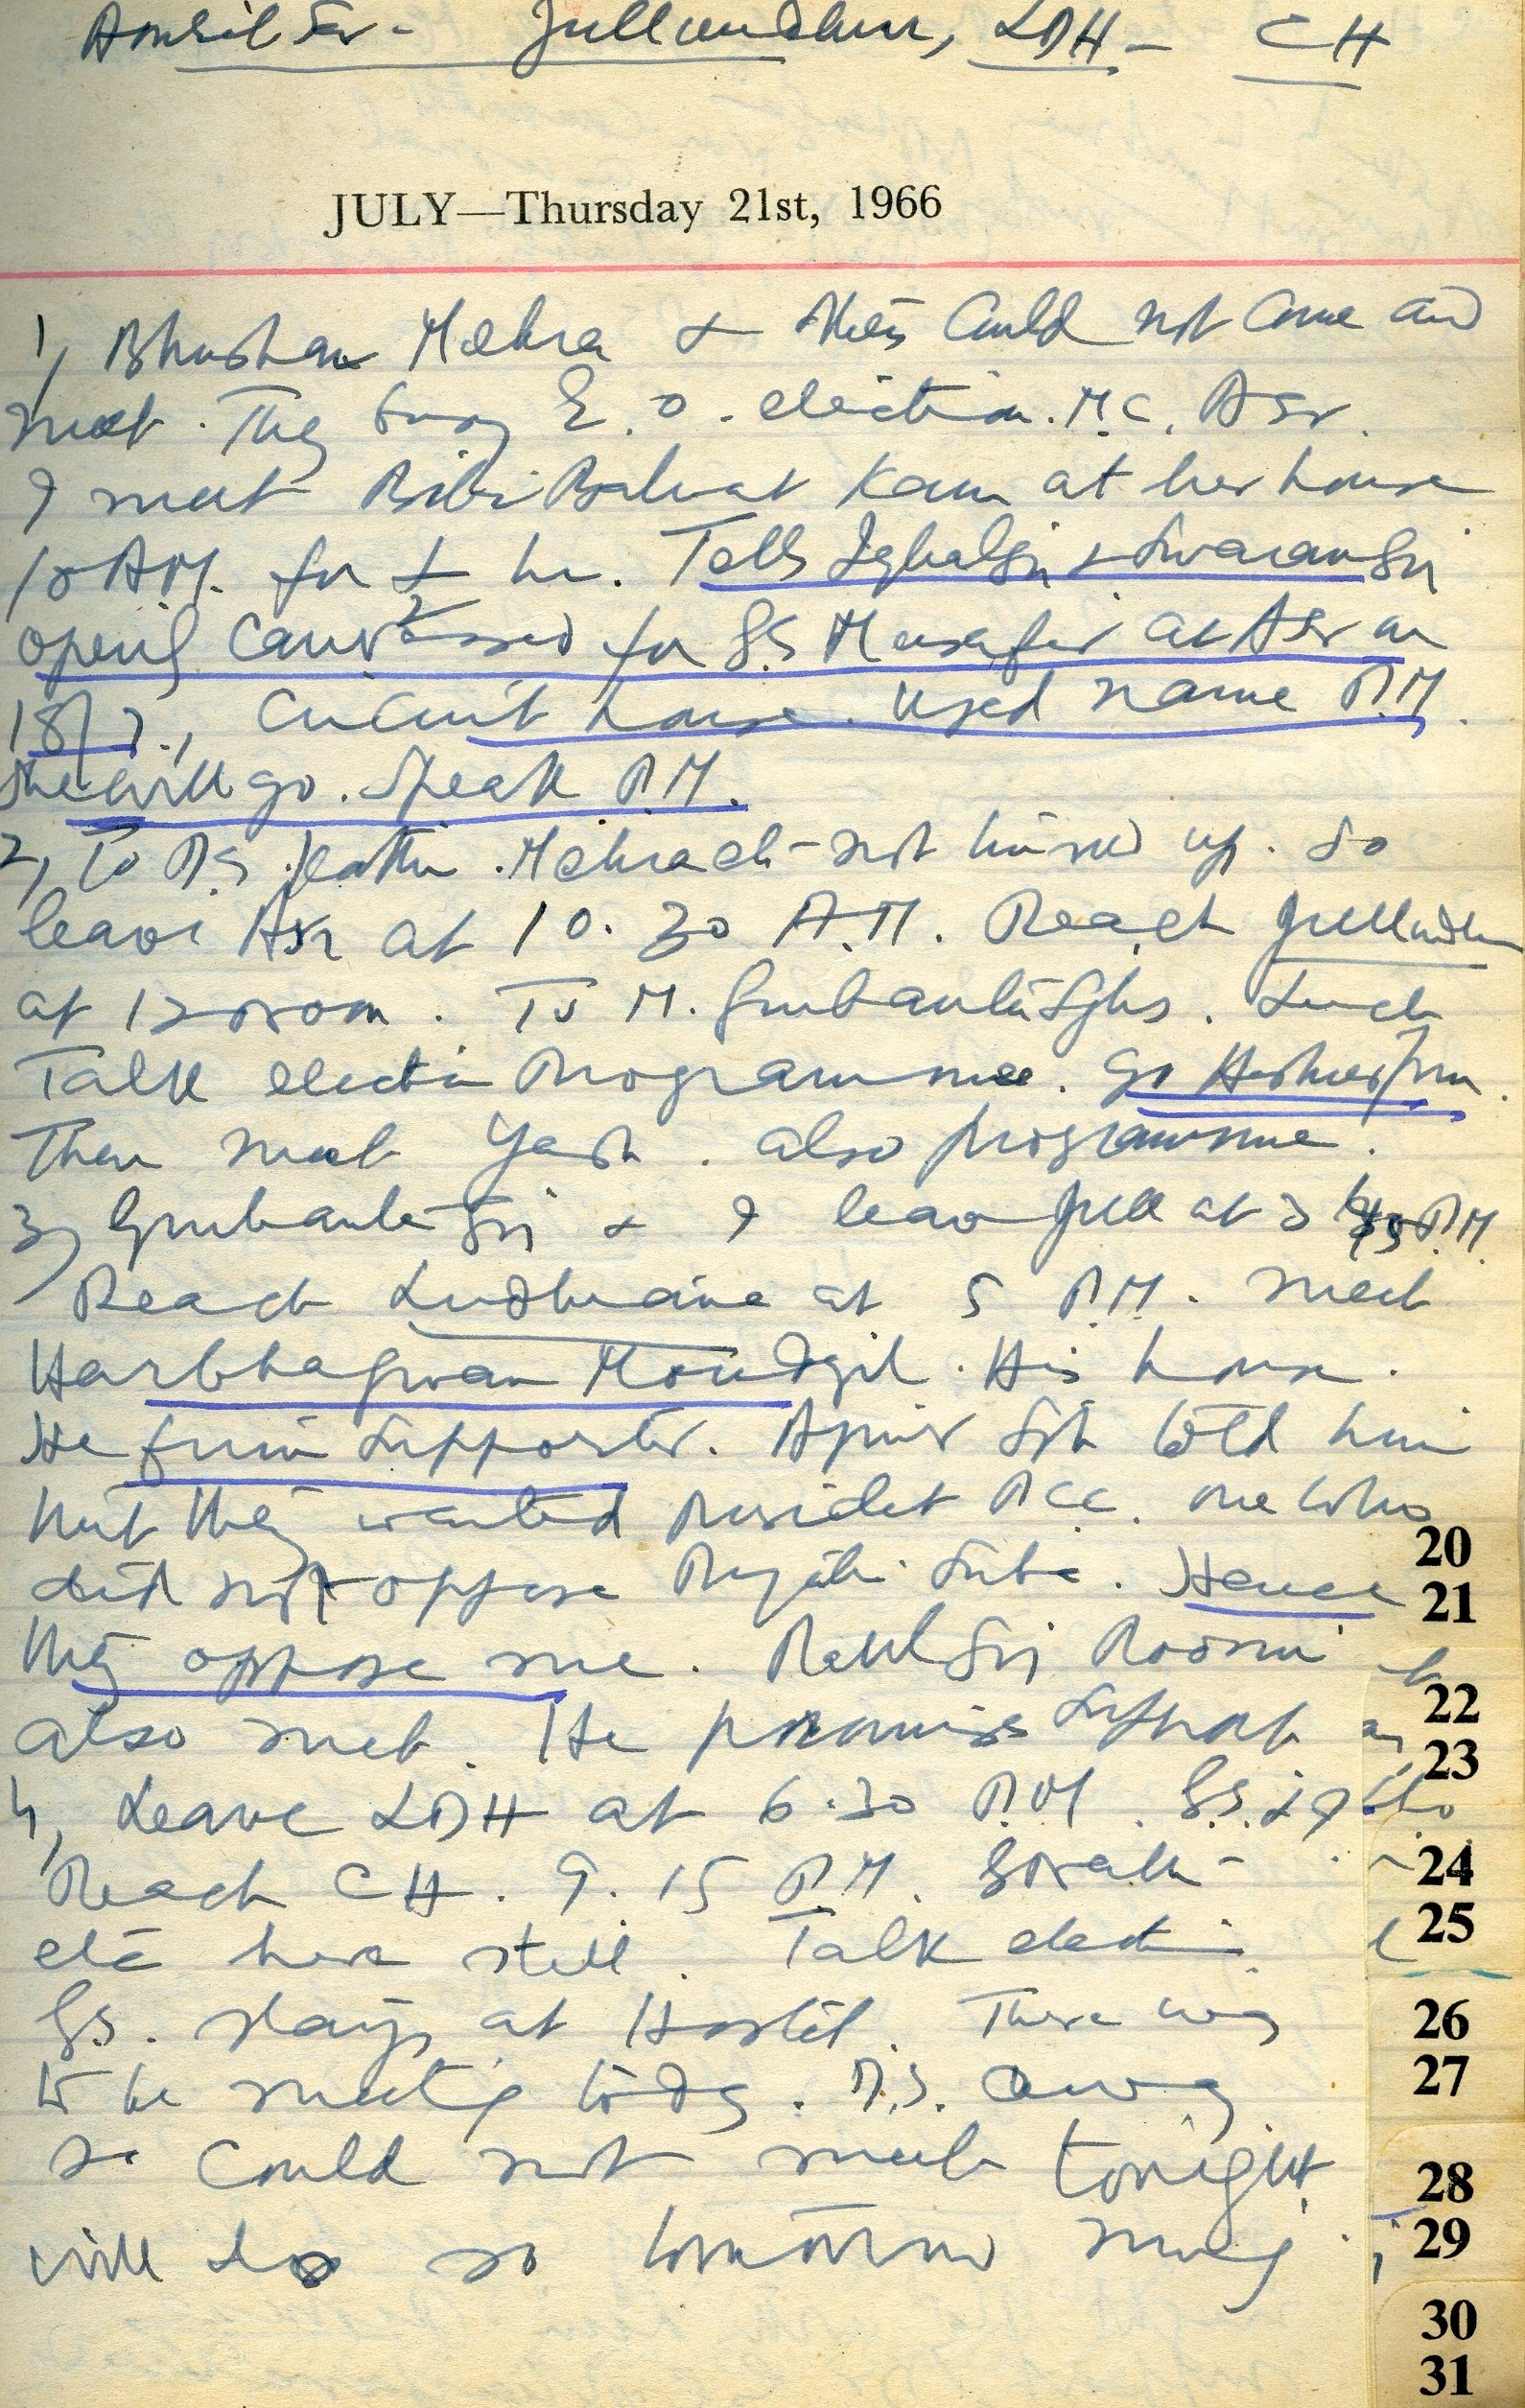 Amritsar - Jullundhur, LDH - CH
JULY—Thursday 21st, 1966
1, Bhushan Mehra & could not come and
meet. They busy E.O. election. M.C. Asr.
I meet Bibi Balwat Kaur at her house
10 AM. for ½ hr. Tells IqbalSn & SwaranSn
openly canvassed for G.S Musafir at Asr on
18/7, Circuit house. Used name P.M.
She will go. Speak P.M.
2, To P.S. . Mehra etc - not turned up. So
leave Asr at 10.30 A.M. Reach Jullundhur
at 12 noon. To M. Gurbanta Sghs. Lunch
Talk election Programme. Go
Then meet Yash. also programme.
3, Gurbanta Sn & I leave Jull at 3 P.M.
Reach Ludhiana at 5 P.M. meet
Harbhagwan Moudgil. His house.
He firm supporter. Ajmer Sgh told him
that they wanted President PCC. one who
did not oppose Punjabi Suba. Hence
they oppose me. Sn
also met. He promises support
4, Leave LDH at 6.30 P.M. G.S. & I
Reach CH. 9.15 P.M.
etc here still. Talk election
G.S. stays at Hostel. There was
to be meeting today. P.S. away
so could not meet tonight
will do so tomorrow
20
21
22
23
24
25
26
27
28
29
30
31